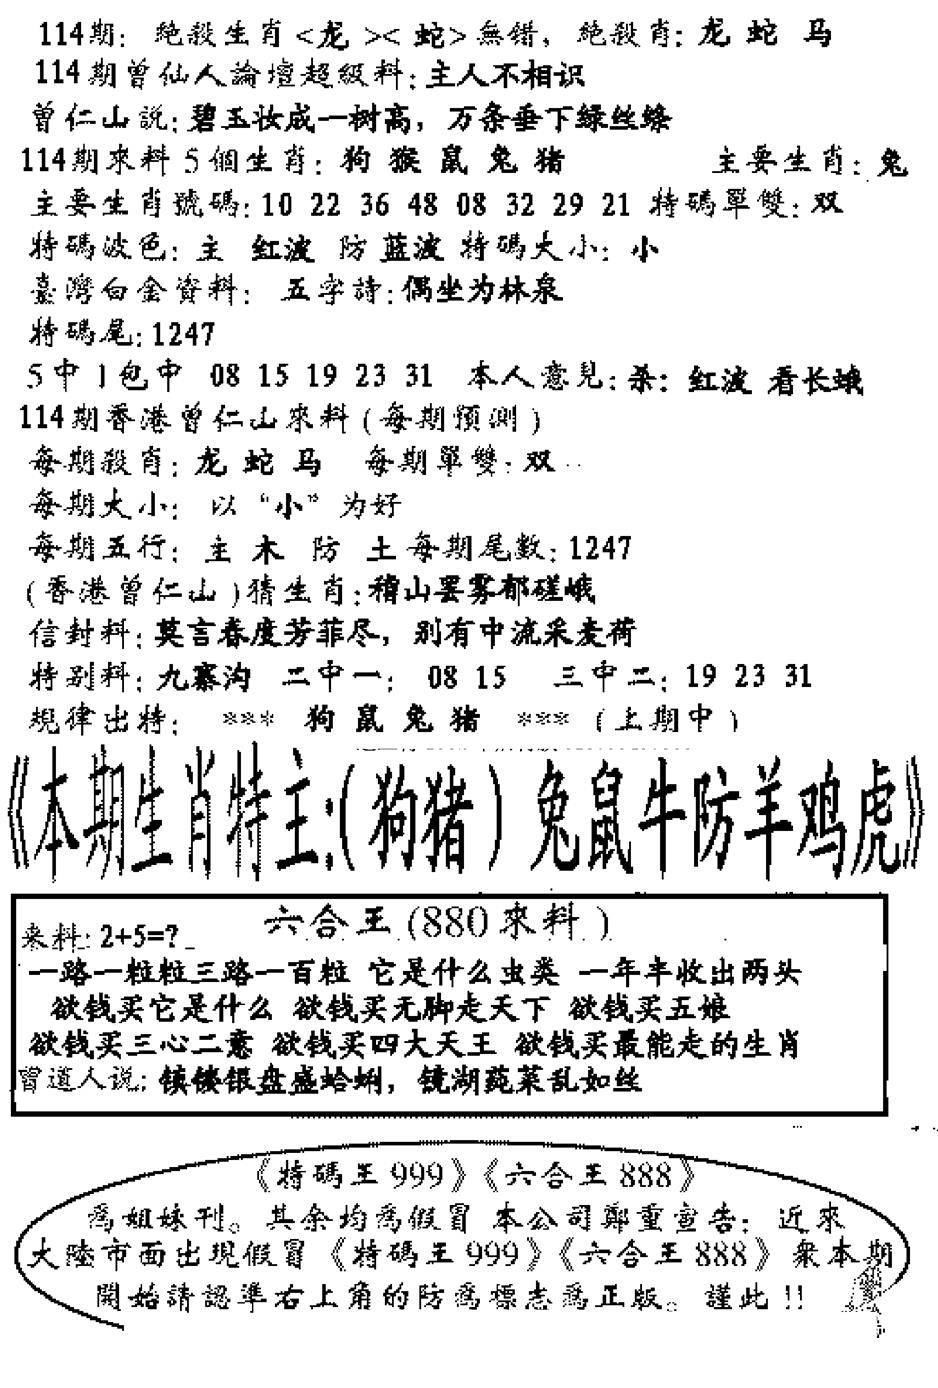 114期: 絶殺生肖<龙><蛇>無错, 絶殺肖: 龙 蛇 马
114期曾仙人論壇超級料:主人不相识
曾仁山説:碧玉妆成一树高, 万条垂下绿丝绦
114期來料 5個生肖: 狗 猴 鼠 兔 猪 主要生肖: 兔
主要生肖號碼:10 22 36 48 08 32 29 21 特碼單雙:双
特碼波色: 主 红波 防 蓝波 特碼大小: 小
臺灣白金資料: 五字詩:偶坐为林泉
特碼尾:1247
5中1包中 08 15 19 23 31 本人意見:杀: 红波 看长蛾
114期香港曾仁山來料(每期預測)
每期殺肖: 龙 蛇 马 每期單雙: 双
每期大小: 以“小”为好
每期五行: 主 木 防 土 每期尾數:1247
(香港曾仁山)猜生肖:稽山罢雾郁磋峨
信封料:莫言春度芳菲尽, 别有中流采麦荷
特别料:九寨沟 二中一: 08 15 三中二:19 23 31
規律出特: *** 狗 鼠 兔 猪 *** (上期中)
《本期生肖特主:(狗猪)兔鼠牛防羊鸡虎》
六合王(880來料)
来料:2+5=?
一路一粒粒三路一百粒 它是什么虫类 一年丰收出两头
欲钱买它是什么 欲钱买无脚走天下 欲钱买五娘
欲钱买三心二意 欲钱买四大天王 欲钱买最能走的生肖
曾道人说:镇楼银盘盛蛤蜊, 镜湖莼菜乱如丝
《特碼王999》《六合王888》
爲姐妹刊。其余均爲假冒 本公司鄭重宣告: 近來
大陸市面出現假冒《特碼王999》《六合王888》衆本期
開始請認準右上角的防爲標志爲正版。謹此!!